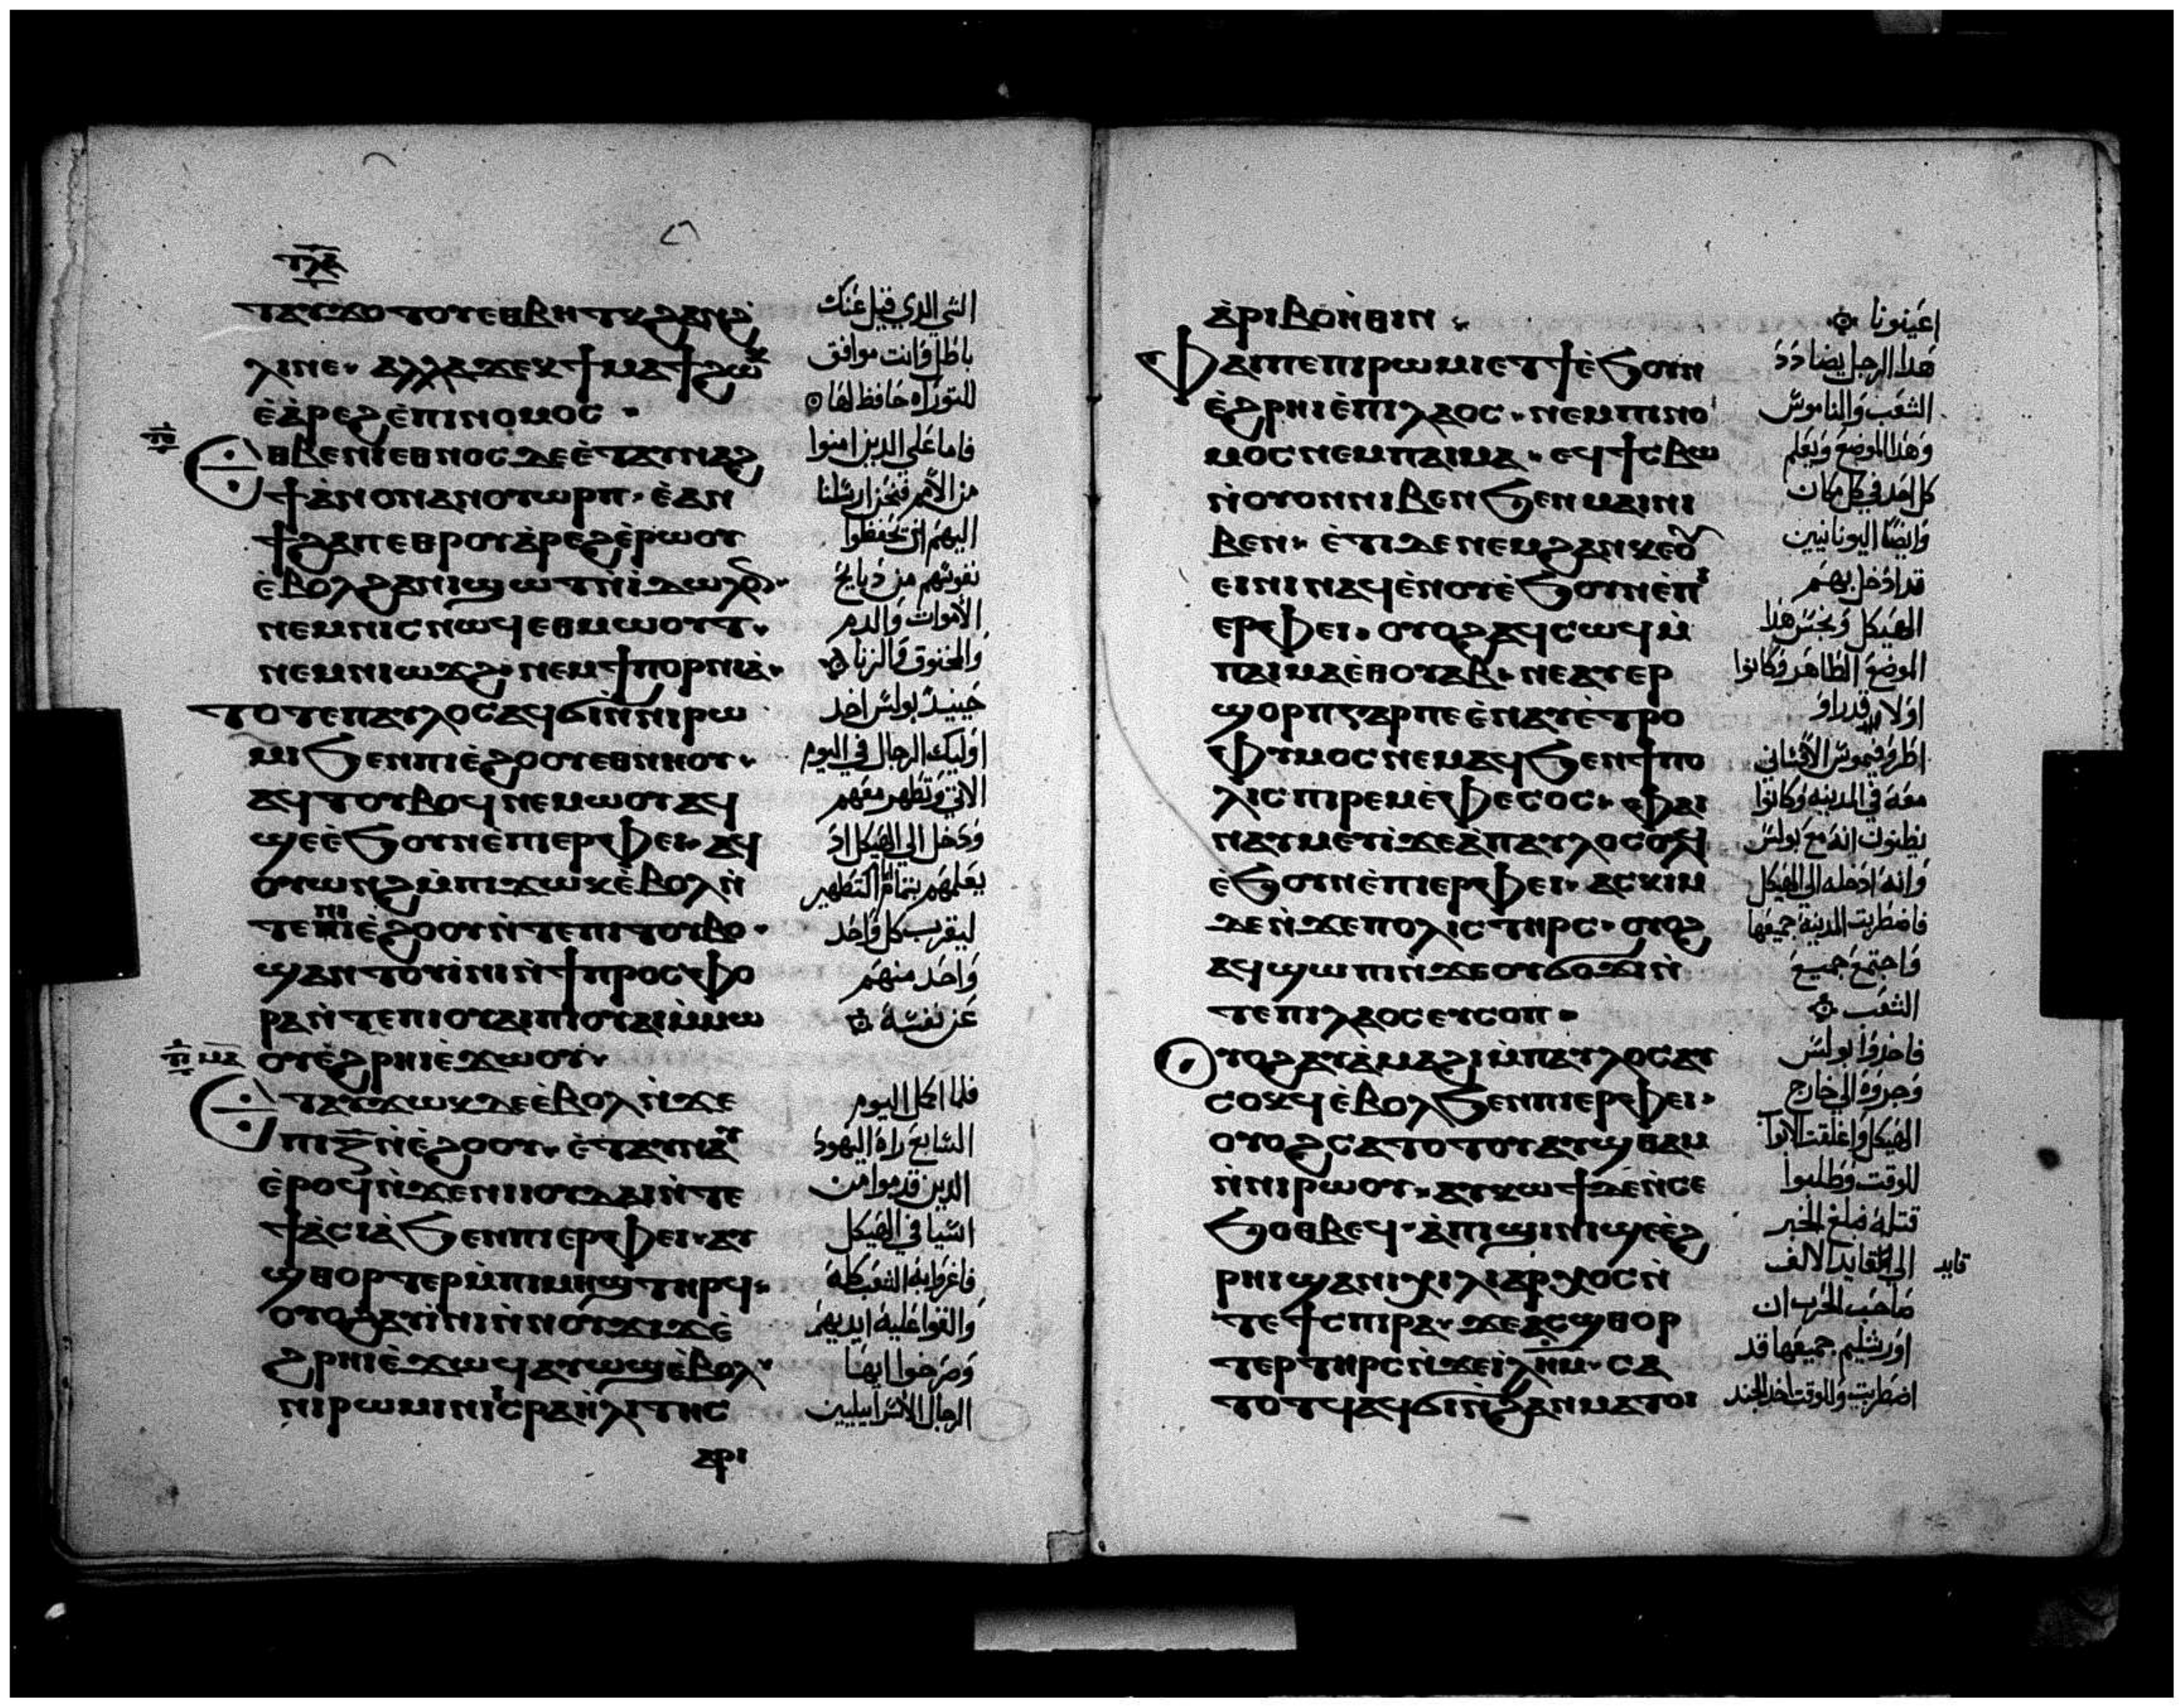 ⲧⲗⲁ
ⲧⲁⲩϫⲟⲧⲟⲩⲉⲑⲃⲏⲧⲕϩⲁⲛϩ
ⲗⲓⲛⲉ· ⲁⲗⲗⲁϫⲉⲕϯⲙⲁϯϩⲱⲕ
ⲉ̀ⲁ̀ⲣⲉϩⲉ̀ⲡⲓⲛⲟⲙⲟⲥ·
ⲉⲑⲃⲉⲛⲓⲉⲑⲛⲟⲥⲇⲉⲉ̀ⲧⲁⲩⲛⲁϩ
ϯⲁ̀ⲛⲟⲛⲁⲛⲟⲩⲱⲣⲡ· ⲉ̀ⲁⲛ
ϯϩⲁⲡⲉⲑⲣⲟⲩⲁ̀ⲣⲉϩⲉ̀ⲣⲱⲟⲩ
ⲉ̀ⲃⲟⲗϩⲁⲛⲓϣⲱⲧⲛ̀ⲓ̀ⲇⲱⲗⲟⲛ·
ⲛⲉⲙⲛⲓⲥⲛⲱϥⲉⲑⲙⲱⲟⲩⲧ·
ⲛⲉⲙⲛⲓⲱϫϩ· ⲛⲉⲙϯⲡⲟⲣⲛⲓⲁ̀·
ⲧⲟⲧⲉⲡⲁⲩⲗⲟⲥⲁϥϭⲓⲛ̀ⲛⲓⲣⲱ
ⲙⲓϧⲉⲛⲡⲓⲉ̀ϩⲟⲟⲩⲉⲑⲛⲏⲟⲩ·
ⲁϥⲧⲟⲩⲃⲟϥⲛⲉⲙⲱⲟⲩ ⲁϥ
ϣⲉⲉ̀ϧⲟⲩⲛⲉ̀ⲡⲓⲉⲣⲫⲉⲓ· ⲁϥ
ⲟⲩⲱⲛϩⲙ̀ⲡⲓϫⲱⲕⲉ̀ⲃⲟⲗⲛ̀
ⲧⲉⲛⲓⲉ̀ϩⲟⲟⲩⲛ̀ⲧⲉⲡⲓⲧⲟⲩⲃⲟ·
ϣⲁⲛⲧⲟⲩⲓ̀ⲛⲓⲛ̀ϯⲡⲣⲟⲥⲫⲟ
ⲣⲁⲛ̀ⲧⲉⲡⲓⲟⲩⲁⲓⲡⲓⲟⲩⲁⲓⲙ̀ⲙⲱ
ⲟⲩⲉ̀ϩⲣⲏⲓⲉ̀ϫⲱⲟⲩ·
ⲉⲧⲁⲩϫⲱⲕⲇⲉⲉ̀ⲃⲟⲗⲛ̀ϫⲉ
ⲡⲓⲍ̅ⲛ̀ⲉ̀ϩⲟⲟⲩ· ⲉ̀ⲧⲁⲩⲛⲁⲩ
ⲉ̀ⲣⲟϥⲛ̀ϫⲉⲛⲓⲓⲟⲩⲇⲁⲓⲛ̀ⲧⲉ
ϯⲁⲥⲓⲁ̀ϧⲉⲛⲡⲓⲉⲣⲫⲉⲓ· ⲁⲩ
ϣⲑⲟⲣⲧⲉⲣⲙ̀ⲡⲓⲙⲏϣⲧⲏⲣϥ·
ⲟⲩⲟϩⲁⲩⲓ̀ⲛⲓⲛ̀ⲛⲟⲩϫⲓϫⲉ̀
ϩⲣⲏⲓⲉ̀ϫⲱϥⲁⲩⲱϣⲉ̀ⲃⲟⲗ·
ⲛⲓⲣⲱⲙⲓⲛⲓⲓⲥⲣⲁⲏ̀ⲗⲓⲧⲏⲥ
ⲁⲣⲓ
الشي الذي قيل عنك
باطل وانت موافق
للتوراه حافظ لها
فاما على الذين امنوا
من الامم فنحن ارسلنا
اليهم ان يحفظوا
نفوسهم من دبايح
الاموات والدم
والمخنوق والزنا
حينيد بولس اخد
اوليك الرجال في اليوم
الاتي وتطهر معهم
ودخل الى الهيكل اد
يعلمهم بتمام ايام التطهير
ليقرب كل واحد
واحد منهم
عن نفسه
فلما اكمل اليوم
السابع راه اليهود
الدين قدموا من
اسيا في الهيكل
فاغروا به الشعب كله
والقوا عليه ايديهم
وصرخوا ايها
الرجال الاسراييليين
ⲁ̀ⲣⲓⲃⲟⲏ̀ⲑⲓⲛ·
ⲫⲁⲓⲡⲉⲡⲓⲣⲱⲙⲓⲉⲧϯⲉ̀ϧⲟⲩⲛ
ⲉ̀ϩⲣⲏⲓⲉ̀ⲡⲓⲗⲁⲟⲥ· ⲛⲉⲙⲡⲓⲛⲟ
ⲙⲟⲥⲛⲉⲙⲡⲁⲓⲙⲁ· ⲉϥϯⲥⲃⲱ
ⲛ̀ⲟⲩⲟⲛⲛⲓⲃⲉⲛϧⲉⲛⲙⲁⲓⲛⲓ
ⲃⲉⲛ· ⲉ̀ⲧⲓⲇⲉⲛⲉⲙϩⲁⲛⲕⲉⲟⲩ
ⲉⲓⲛⲓⲛⲁϥⲉ̀ⲛⲟⲩⲉ̀ϧⲟⲩⲛⲉ̀ⲡⲓ
ⲉⲣⲫⲉⲓ· ⲟⲩⲟϩⲁϥⲥⲱϥⲙ̀
ⲡⲁⲓⲙⲁⲉ̀ⲑⲟⲩⲁⲃ· ⲛⲉⲁⲩⲉⲣ
ϣⲟⲣⲡⲅⲁⲣⲡⲉⲉ̀ⲛⲁⲩⲉ̀ⲧⲣⲟ
ⲫⲩⲙⲟⲥⲛⲉⲙⲁϥϧⲉⲛϯⲡⲟ
ⲗⲓⲥⲡⲓⲣⲉⲙⲉ̀ⲫⲉⲥⲟⲥ· ⲫⲁⲓ
ⲛⲁⲩⲙⲉⲩⲓ̀ϫⲉⲁ̀ⲡⲁⲩⲗⲟⲥⲟⲗϥ
ⲉ̀ϧⲟⲩⲛⲉ̀ⲡⲓⲉⲣⲫⲉⲓ· ⲁⲥⲕⲓⲙ
ⲇⲉⲛ̀ϫⲉⲡⲟⲗⲓⲥⲧⲏⲣⲥ· ⲟⲩⲟϩ
ⲁϥϣⲱⲡⲓⲛ̀ϫⲉⲟⲩϭⲟϫⲓⲛ̀
ⲧⲉⲡⲓⲗⲁⲟⲥⲉⲩⲥⲟⲡ·
ⲟⲩⲟϩⲁⲩⲁ̀ⲙⲁϩⲓⲙ̀ⲡⲁⲩⲗⲟⲥⲁⲩ
ⲥⲟⲕϥⲉ̀ⲃⲟⲗϧⲉⲛⲡⲓⲉⲣⲫⲉⲓ·
ⲟⲩⲟϩⲥⲁⲧⲟⲧⲟⲩⲁⲩϣⲑⲁⲙ
ⲛ̀ⲛⲓⲣⲱⲟⲩ· ⲁⲩⲕⲱϯⲇⲉⲛ̀ⲥⲉ
ϧⲟⲑⲃⲉϥ· ⲁ̀ⲡⲓϣⲓⲛⲓϣⲉⲉ̀ϩ
ⲣⲏⲓϣⲁⲡⲓⲭⲓⲗⲓⲁⲣⲭⲟⲥⲛ̀
ⲧⲉϯⲥⲡⲓⲣⲁ· ϫⲉⲁⲥϣⲑⲟⲣ
ⲧⲉⲣⲧⲏⲣⲥⲛ̀ϫⲉⲓ̀ⲗⲏ̅ⲙ̅· ⲥⲁ
ⲧⲟⲧϥⲁϥϭⲓⲛ̀ϩⲁⲛⲙⲁⲧⲟⲓ
اعينونا
هدا الرجل يضادد
الشعب والناموس
وهدا الموضع ويعلم
كل احد في كل مكان
وايضا اليونانيين
قد ادخل بهم
الهيكل ونجس هدا
الموضع الطاهر وكانوا
اولا قد راو
اطروفيموس الافسساني
معه في المدينه وكانوا
يظنون انه مع بولس
وانه ادخله الى الهيكل
فاضطربت المدينة جميعها
واجتمع جميع
الشعب
فاخدوا بولس
وجروه الى خارج
الهيكل واغلقت الابواب
للوقت وطلبوا
قتله فبلغ الخبر
الى القايد الالف
قايد
صاحب الحرب ان
اورشليم جميعها قد
اضطربت وللوقت اخد الجند